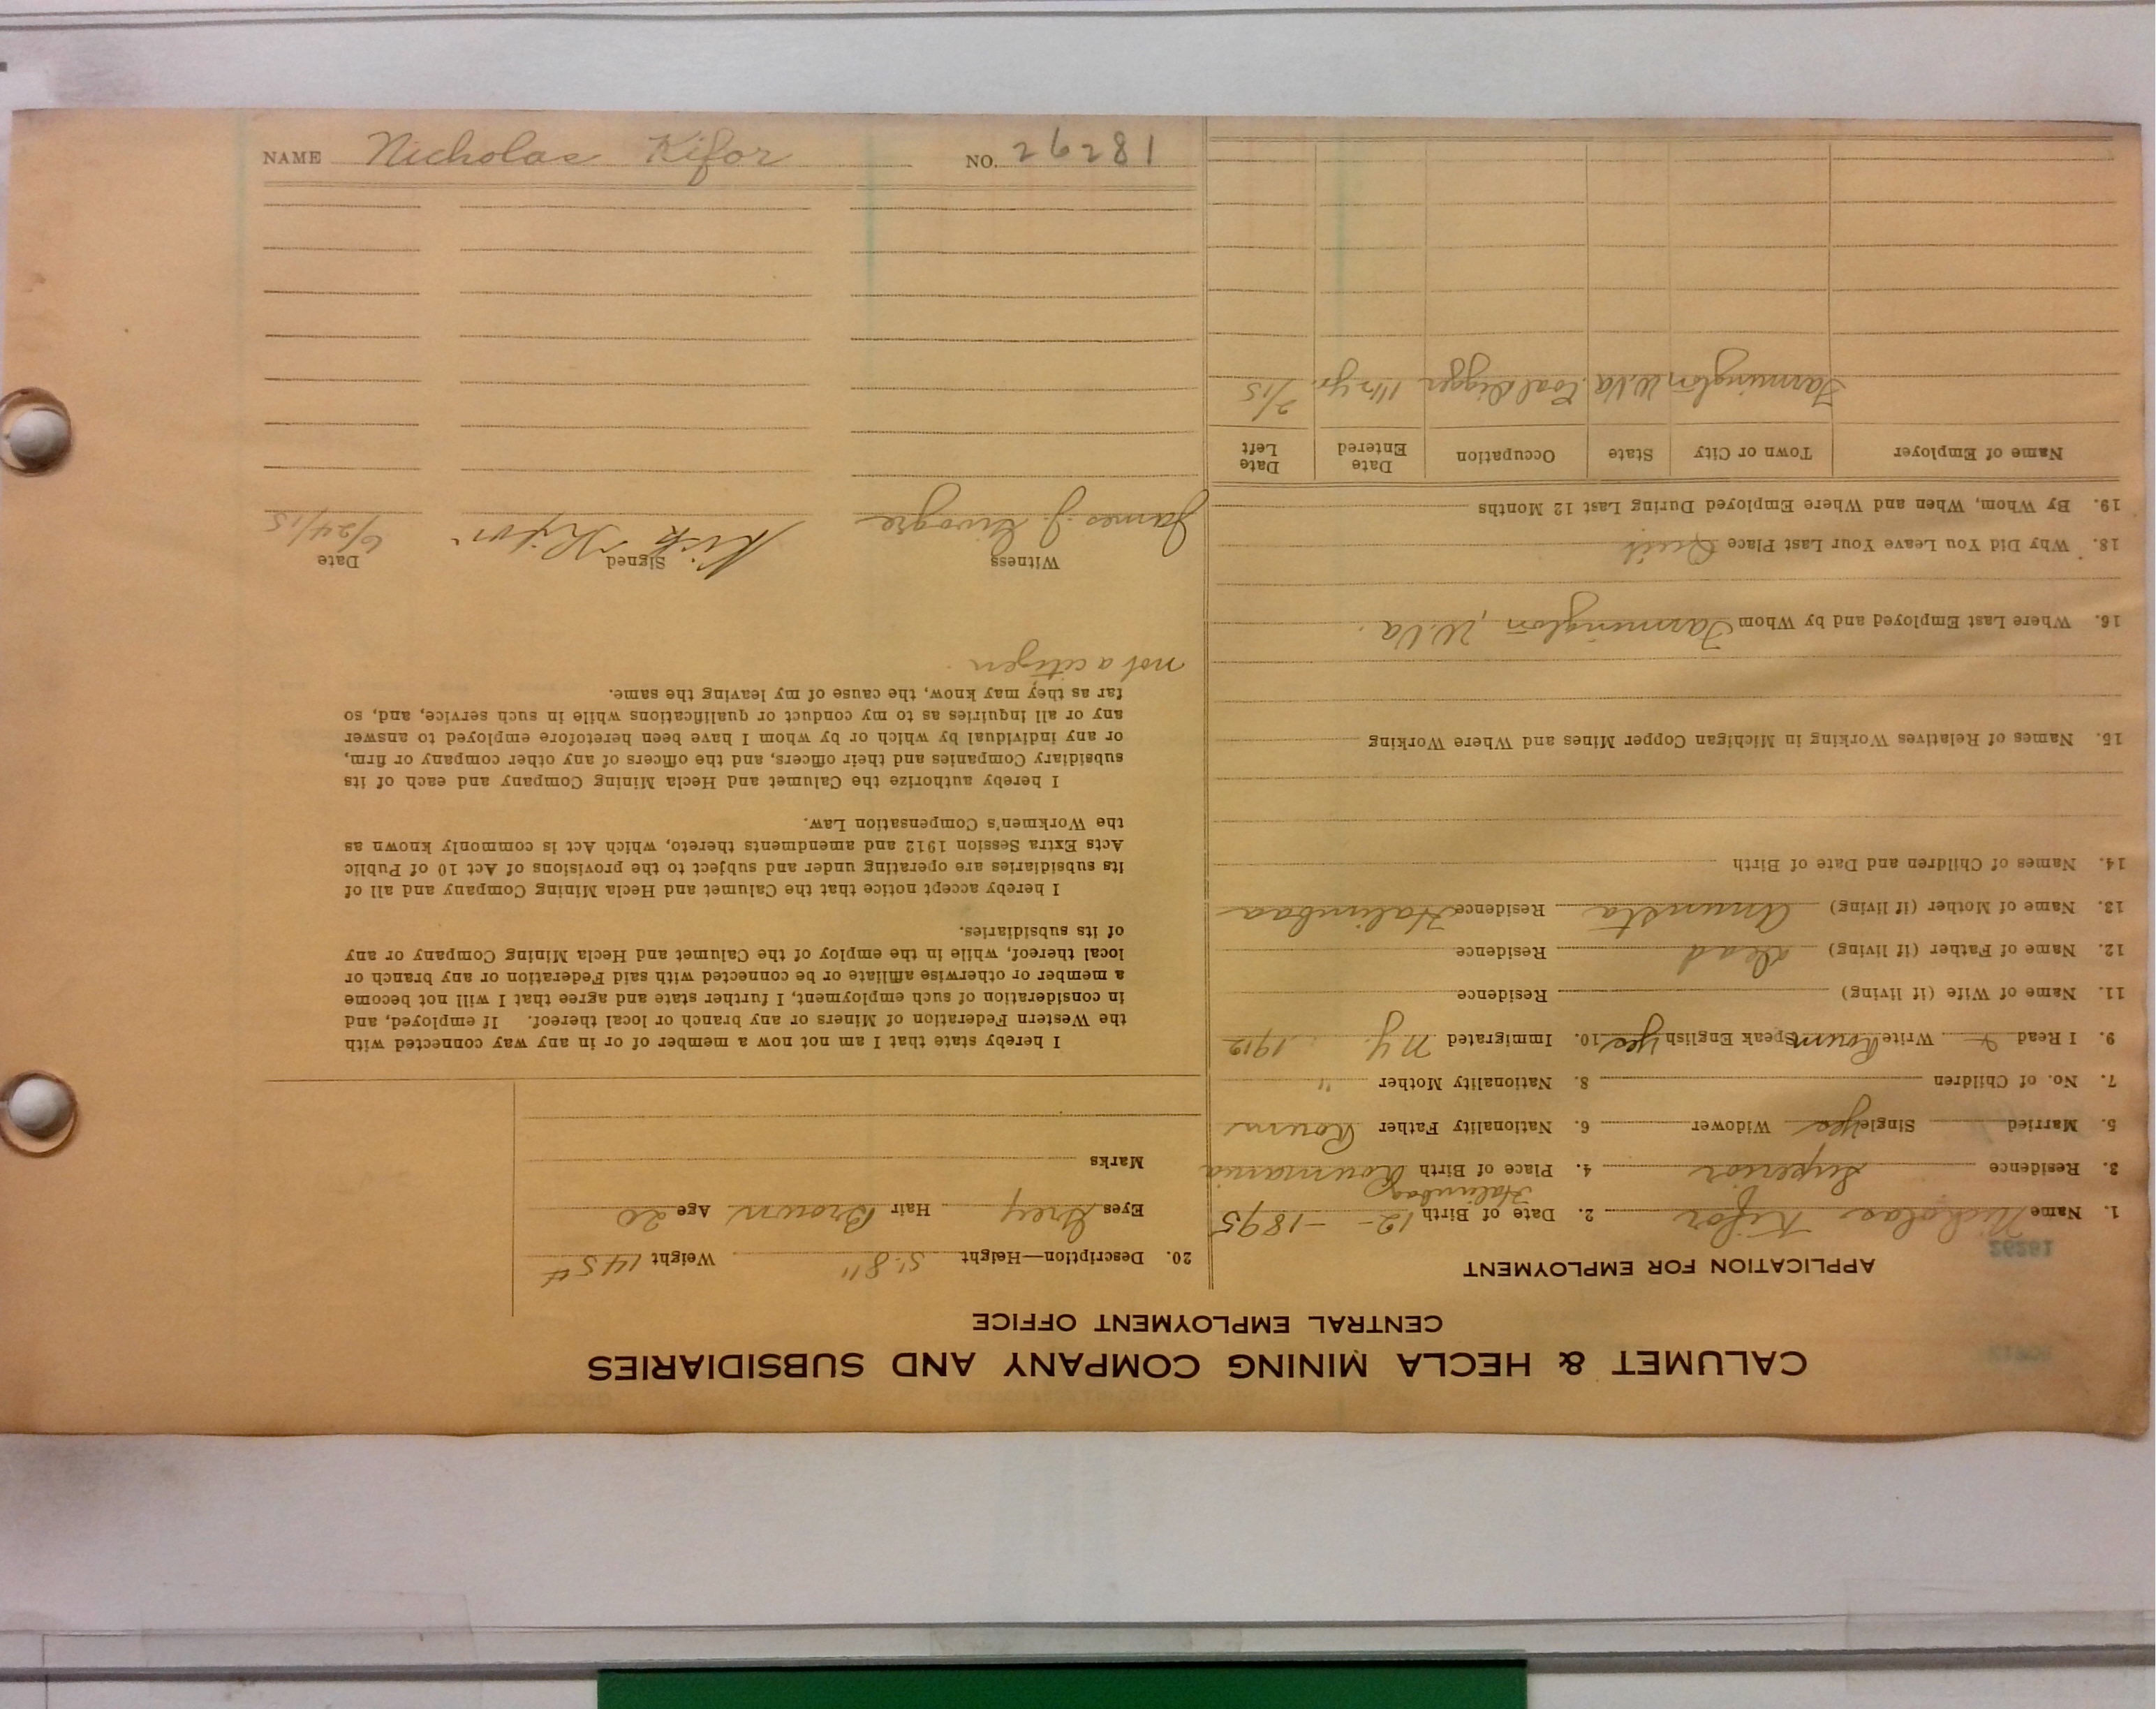 CALUMET & HECLA MINING COMPANY AND SUBSIDIARIES
CENTRAL EMPLOYMENT OFFICE
APPLICATION FOR EMPLOYMENT
26281
1. Name Nicholas Kifor 2. Date of Birth 12 - - 1895
3. Residence Superior 4. Place of Birth Halimbag Roumania
5. Married Single yes Widower 6. Nationality Father Roum
7. No. of Children 8. Nationality Mother "
9. I Read & Write Roum Speak English yes 10. Immigrated N.Y. 1912
11. Name of Wife (if living) Residence
12. Name of Father (if living) dead Residence
13. Name of Mother (if living) Residence Halimbaa
14. Names of Children and Date of Birth
15. Names of Relatives Working in Michigan Copper Mines and Where Working
16. Where Last Employed and by Whom Farmington, W.Va.
18. Why Did You Leave Your Last Place Quit
19. By Whom, When and Where Employed During Last 12 Months
Name of Employer Town or City State Occupation Date Entered Date Left
Farmington W.Va Coal digger 1 1/2 yr. 2/15
20. Description—Height 5' 8" Weight 145 #
Eyes Grey Hair Brown Age 20
Marks
I hereby state that I am not now a member of or in any way connected with
the Western Federation of Miners or any branch or local thereof. If employed, and
in consideration of such employment, I further state and agree that I will not become
a member or otherwise affiliate or be connected with said Federation or any branch or
local thereof, while in the employ of the Calumet and Hecla Mining Company or any
of its subsidiaries.
I hereby accept notice that the Calumet and Hecla Mining Company and all of
its subsidiaries are operating under and subject to the provisions of Act 10 of Public
Acts Extra Session 1912 and amendments thereto, which Act is commonly known as
the Workmen's Compensation Law.
I hereby authorize the Calumet and Hecla Mining Company and each of its
subsidiary Companies and their officers, and the officers of any other company or firm,
or any individual by which or by whom I have been heretofore employed to answer
any or all inquiries as to my conduct or qualifications while in such service, and, so
far as they may know, the cause of my leaving the same.
not a citizen.
Witness Signed Date
James J. Nick Kifor 6/24/15
NAME Nicholas Kifor NO. 26281